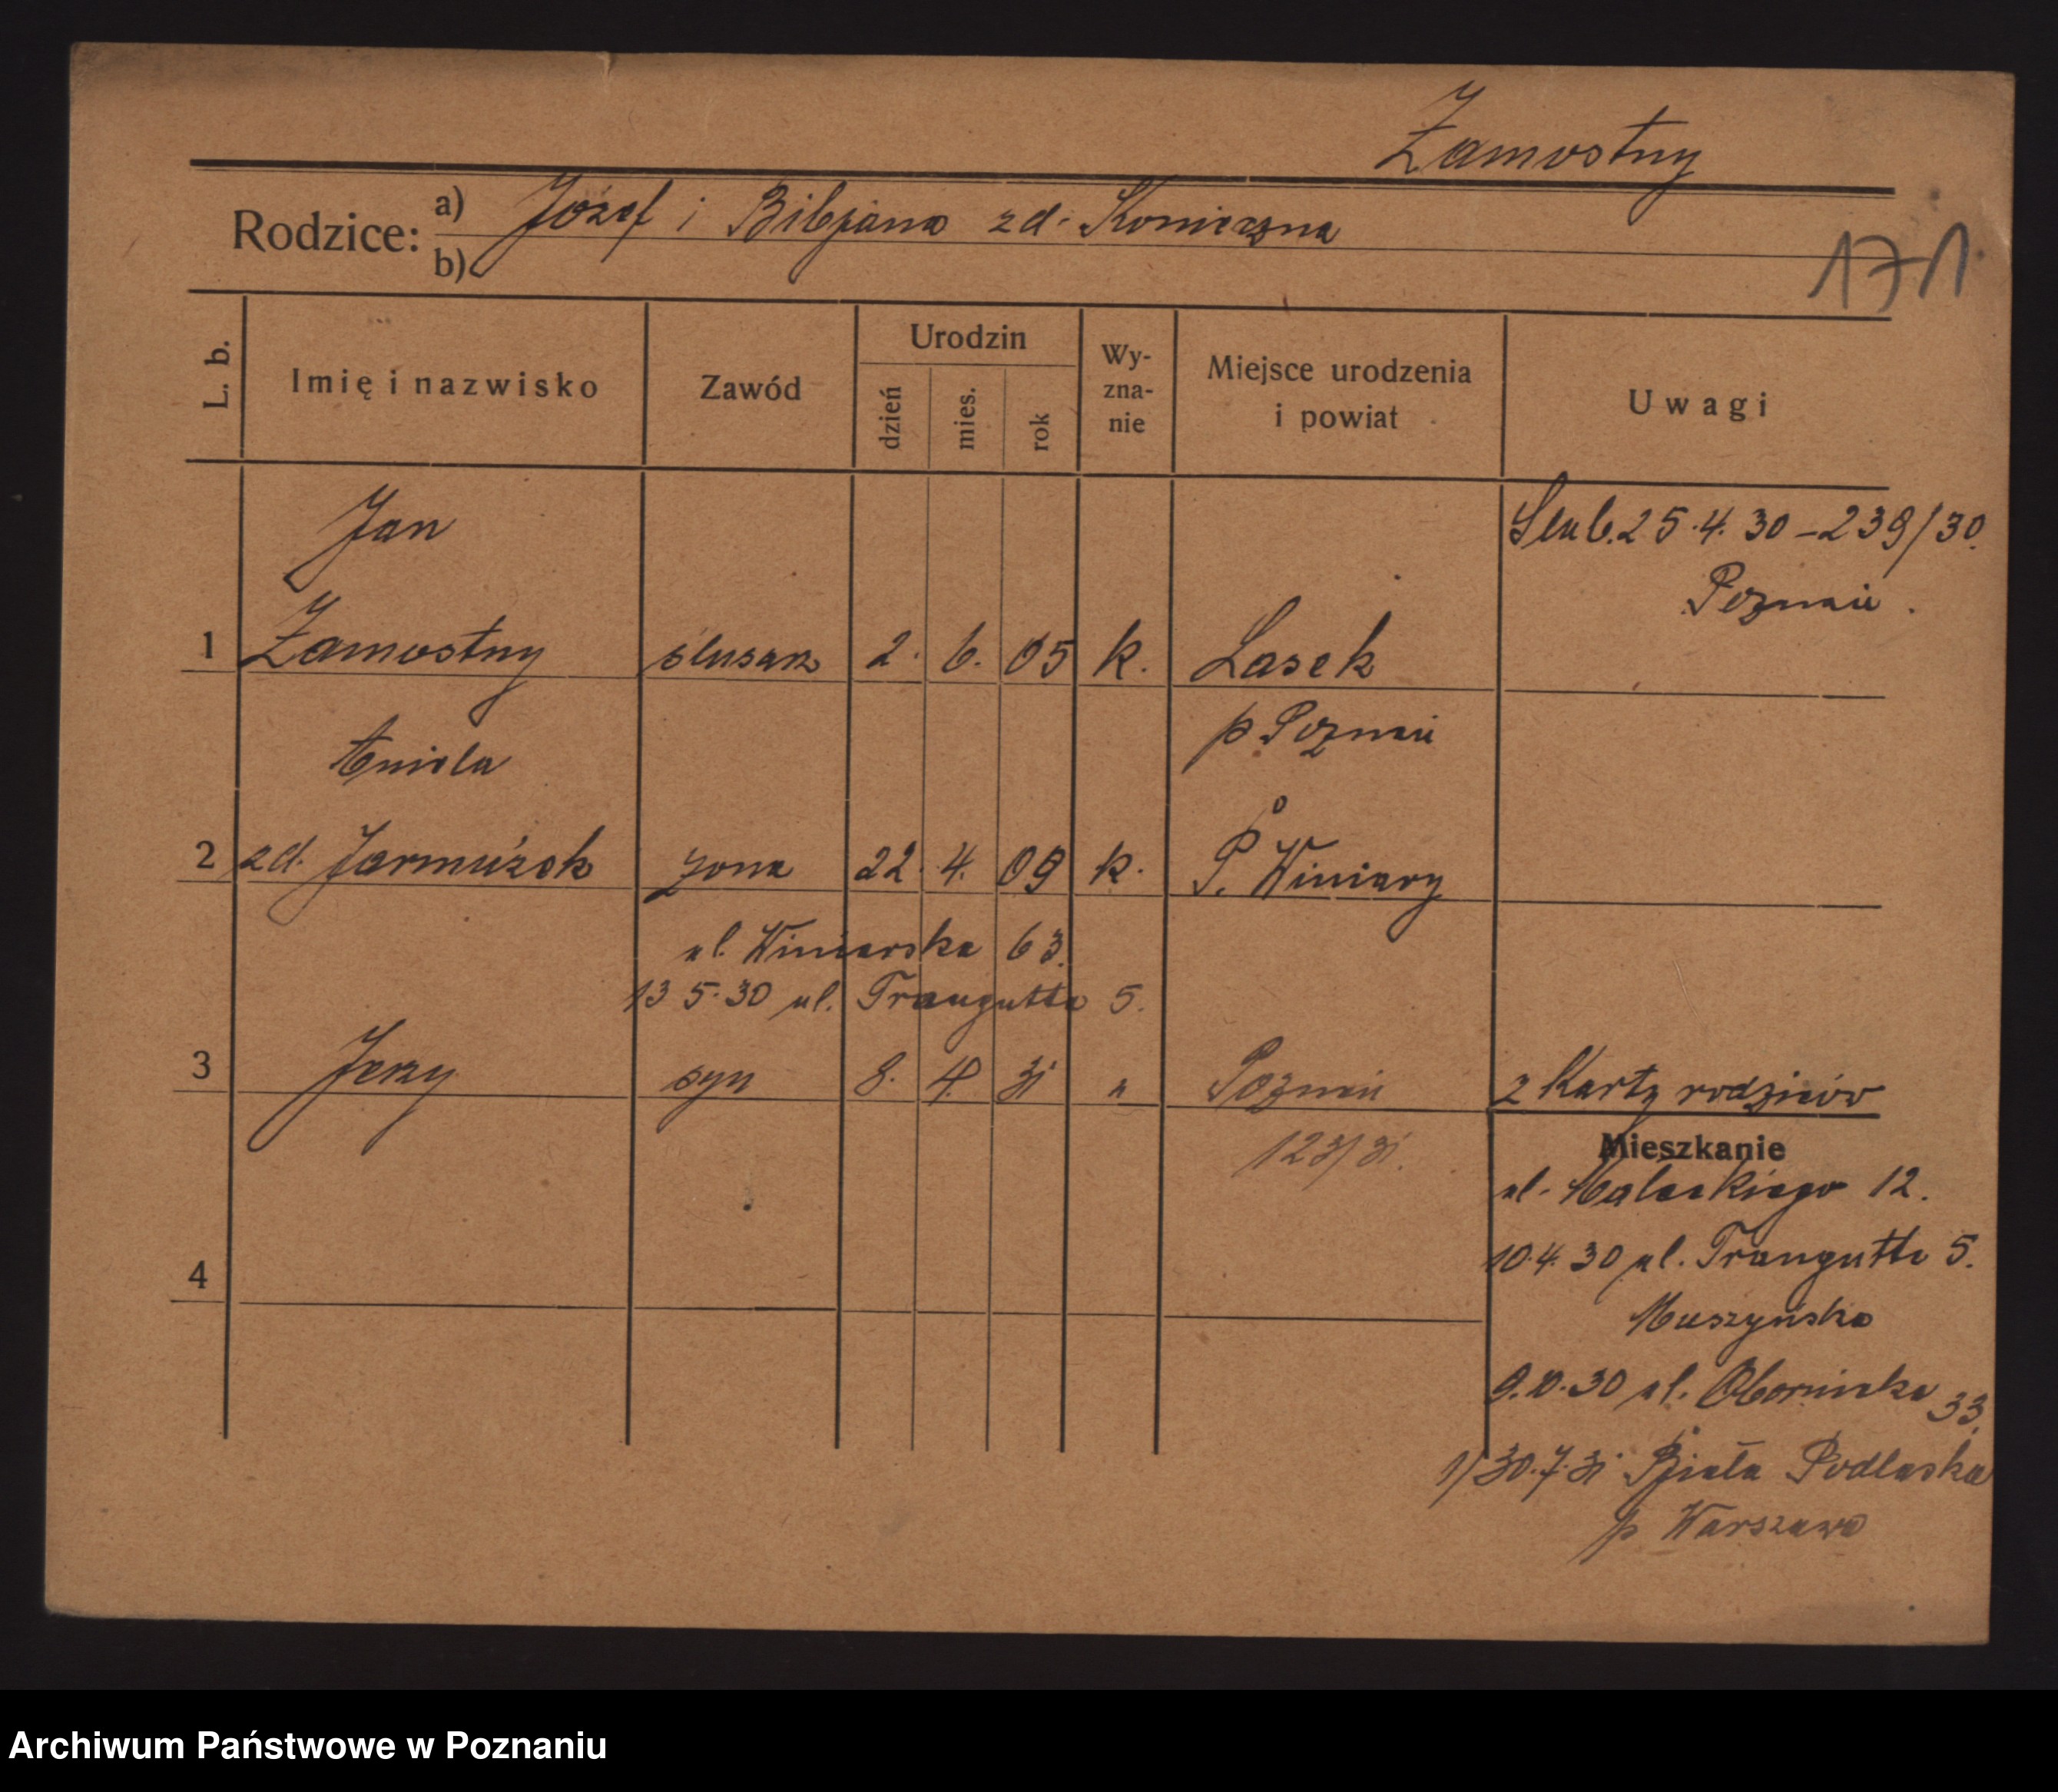 Zamostny
Rodzice: a) Józef i Bibjana zd. Konieczna
b)
171
L. b. Imię i nazwisko Zawód Urodzin dzień mies. rok Wy-zna-nie Miejsce urodzenia i powiat Uwagi
Jan Ślub. 25.4.30 – 239/30.
Poznań.
1 Zamostny ślusarz 2. 6. 05 k. Lasek
p Poznań
Aniela
2 zd. Jarmużek żona 22. 4. 09 k. P. Winiary
ul. Winiarska 63.
13 5.30 ul. Traugutta 5.
3 Jerzy syn 8. 4. 31 " Poznań z Karty rodziców
123/31.
Mieszkanie
ul. Małeckiego 12.
10.4.30 ul. Traugutta 5.
4
Muszyńska
9.10.30 ul. Obornicka 33.
1) 30.7.31 Biała Podlaska
p Warszawa
Archiwum Państwowe w Poznaniu